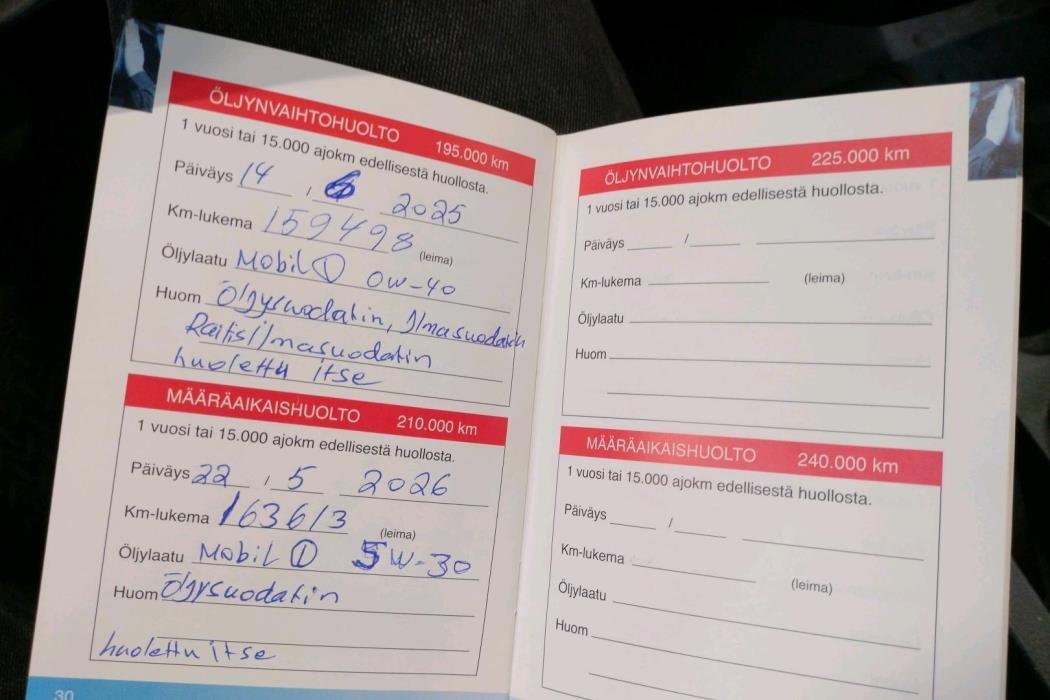 ÖLJYNVAIHTOHUOLTO 195.000 km
1 vuosi tai 15.000 ajokm edellisestä huollosta.
Päiväys 14 / 6 2025
Km-lukema 159498 (leima)
Öljylaatu Mobil 1 0W-40
Huom Öljysuodatin, Ilmasuodatin
Raitisilmasuodatin
huolettu itse
MÄÄRÄAIKAISHUOLTO 210.000 km
1 vuosi tai 15.000 ajokm edellisestä huollosta.
Päiväys 22 / 5 2026
Km-lukema 163613 (leima)
Öljylaatu Mobil 1 5W-30
Huom Öljysuodatin
huolettu itse
30
ÖLJYNVAIHTOHUOLTO 225.000 km
1 vuosi tai 15.000 ajokm edellisestä huollosta.
Päiväys /
Km-lukema (leima)
Öljylaatu
Huom
MÄÄRÄAIKAISHUOLTO 240.000 km
1 vuosi tai 15.000 ajokm edellisestä huollosta.
Päiväys /
Km-lukema (leima)
Öljylaatu
Huom